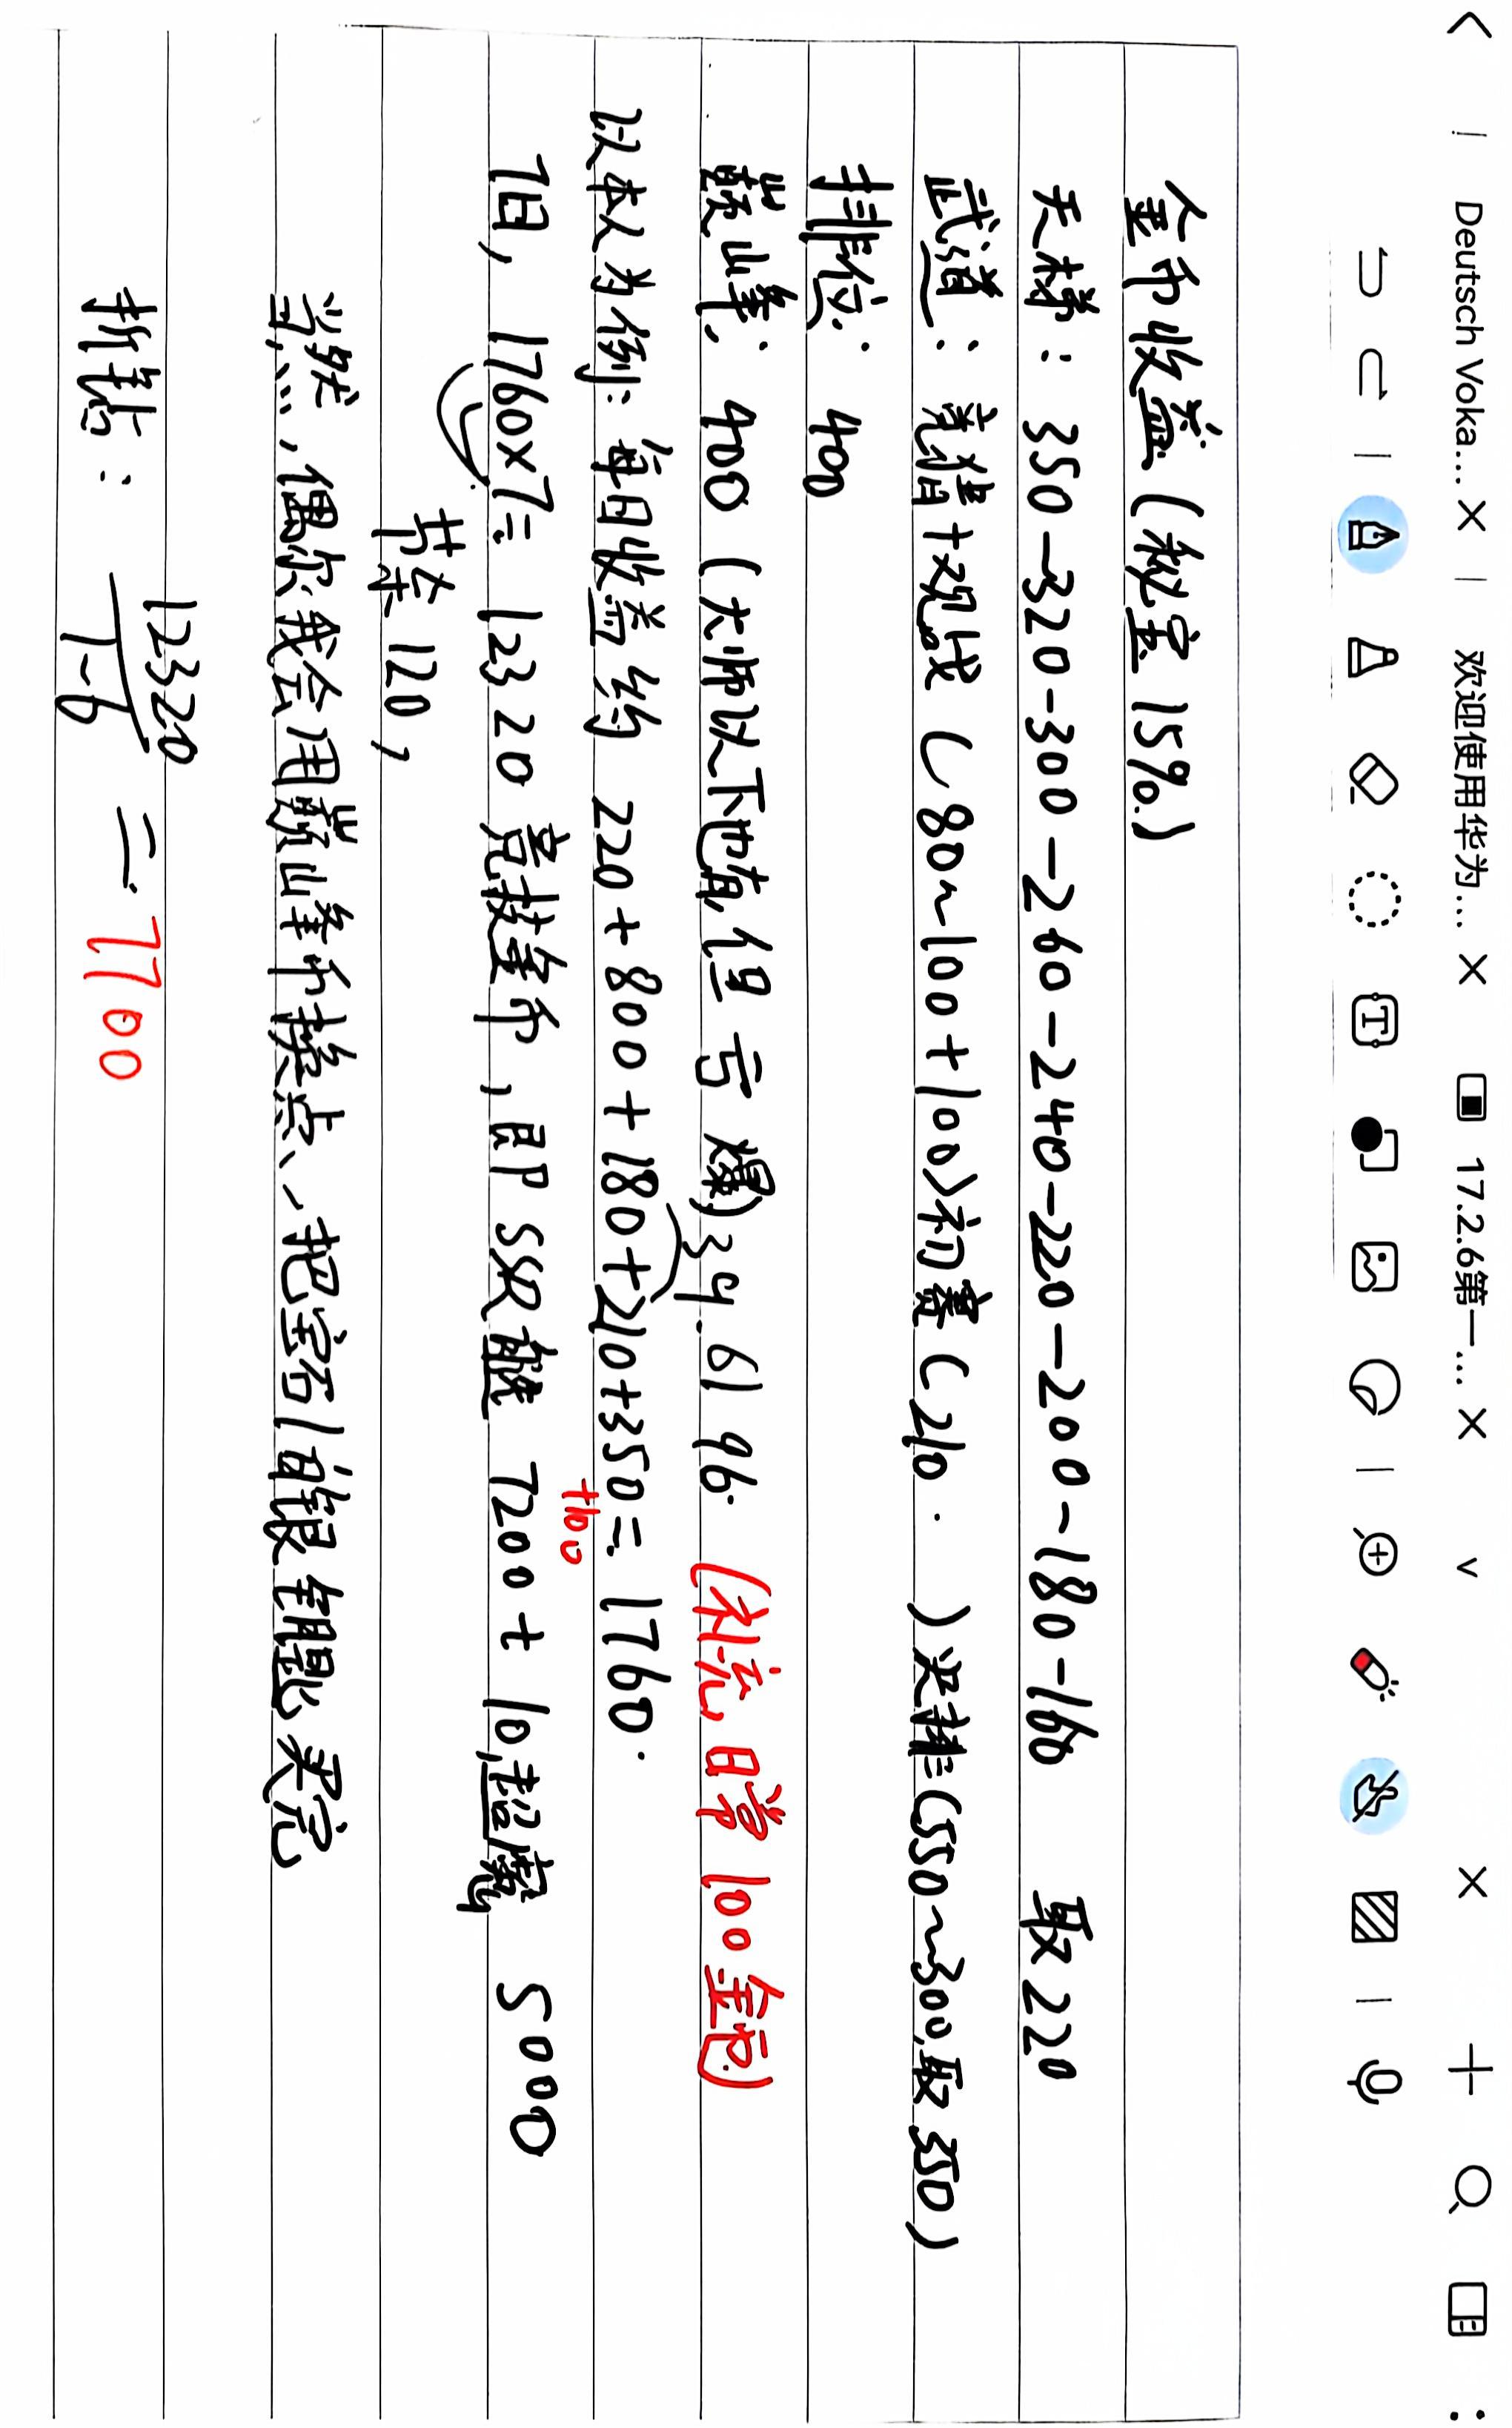 Deutsch Voka... × 欢迎使用华为... × 17.2.6第一... ×
金币收益(秘宝15%)
天梯: 350-320-300-260-240-220-200-180-160 取220
武道: 竞猜+观战(80~100+100)初赛(210.)决赛(550~300,取350)
排位: 400
巅峰: 400 (大师以下也有,但亏爆)34.6196. (利玩,日常100金币)
以本人为例: 每日收益约 220+800+180+210+350=1760.
+100
7日, 1760×7=12320 竞技金币, 即 SSR 7200+10 5000
120,
当然,偶尔我会用巅峰币换点、把宝石1白银钥匙买完
折钻: 12320/1.6 = 7700